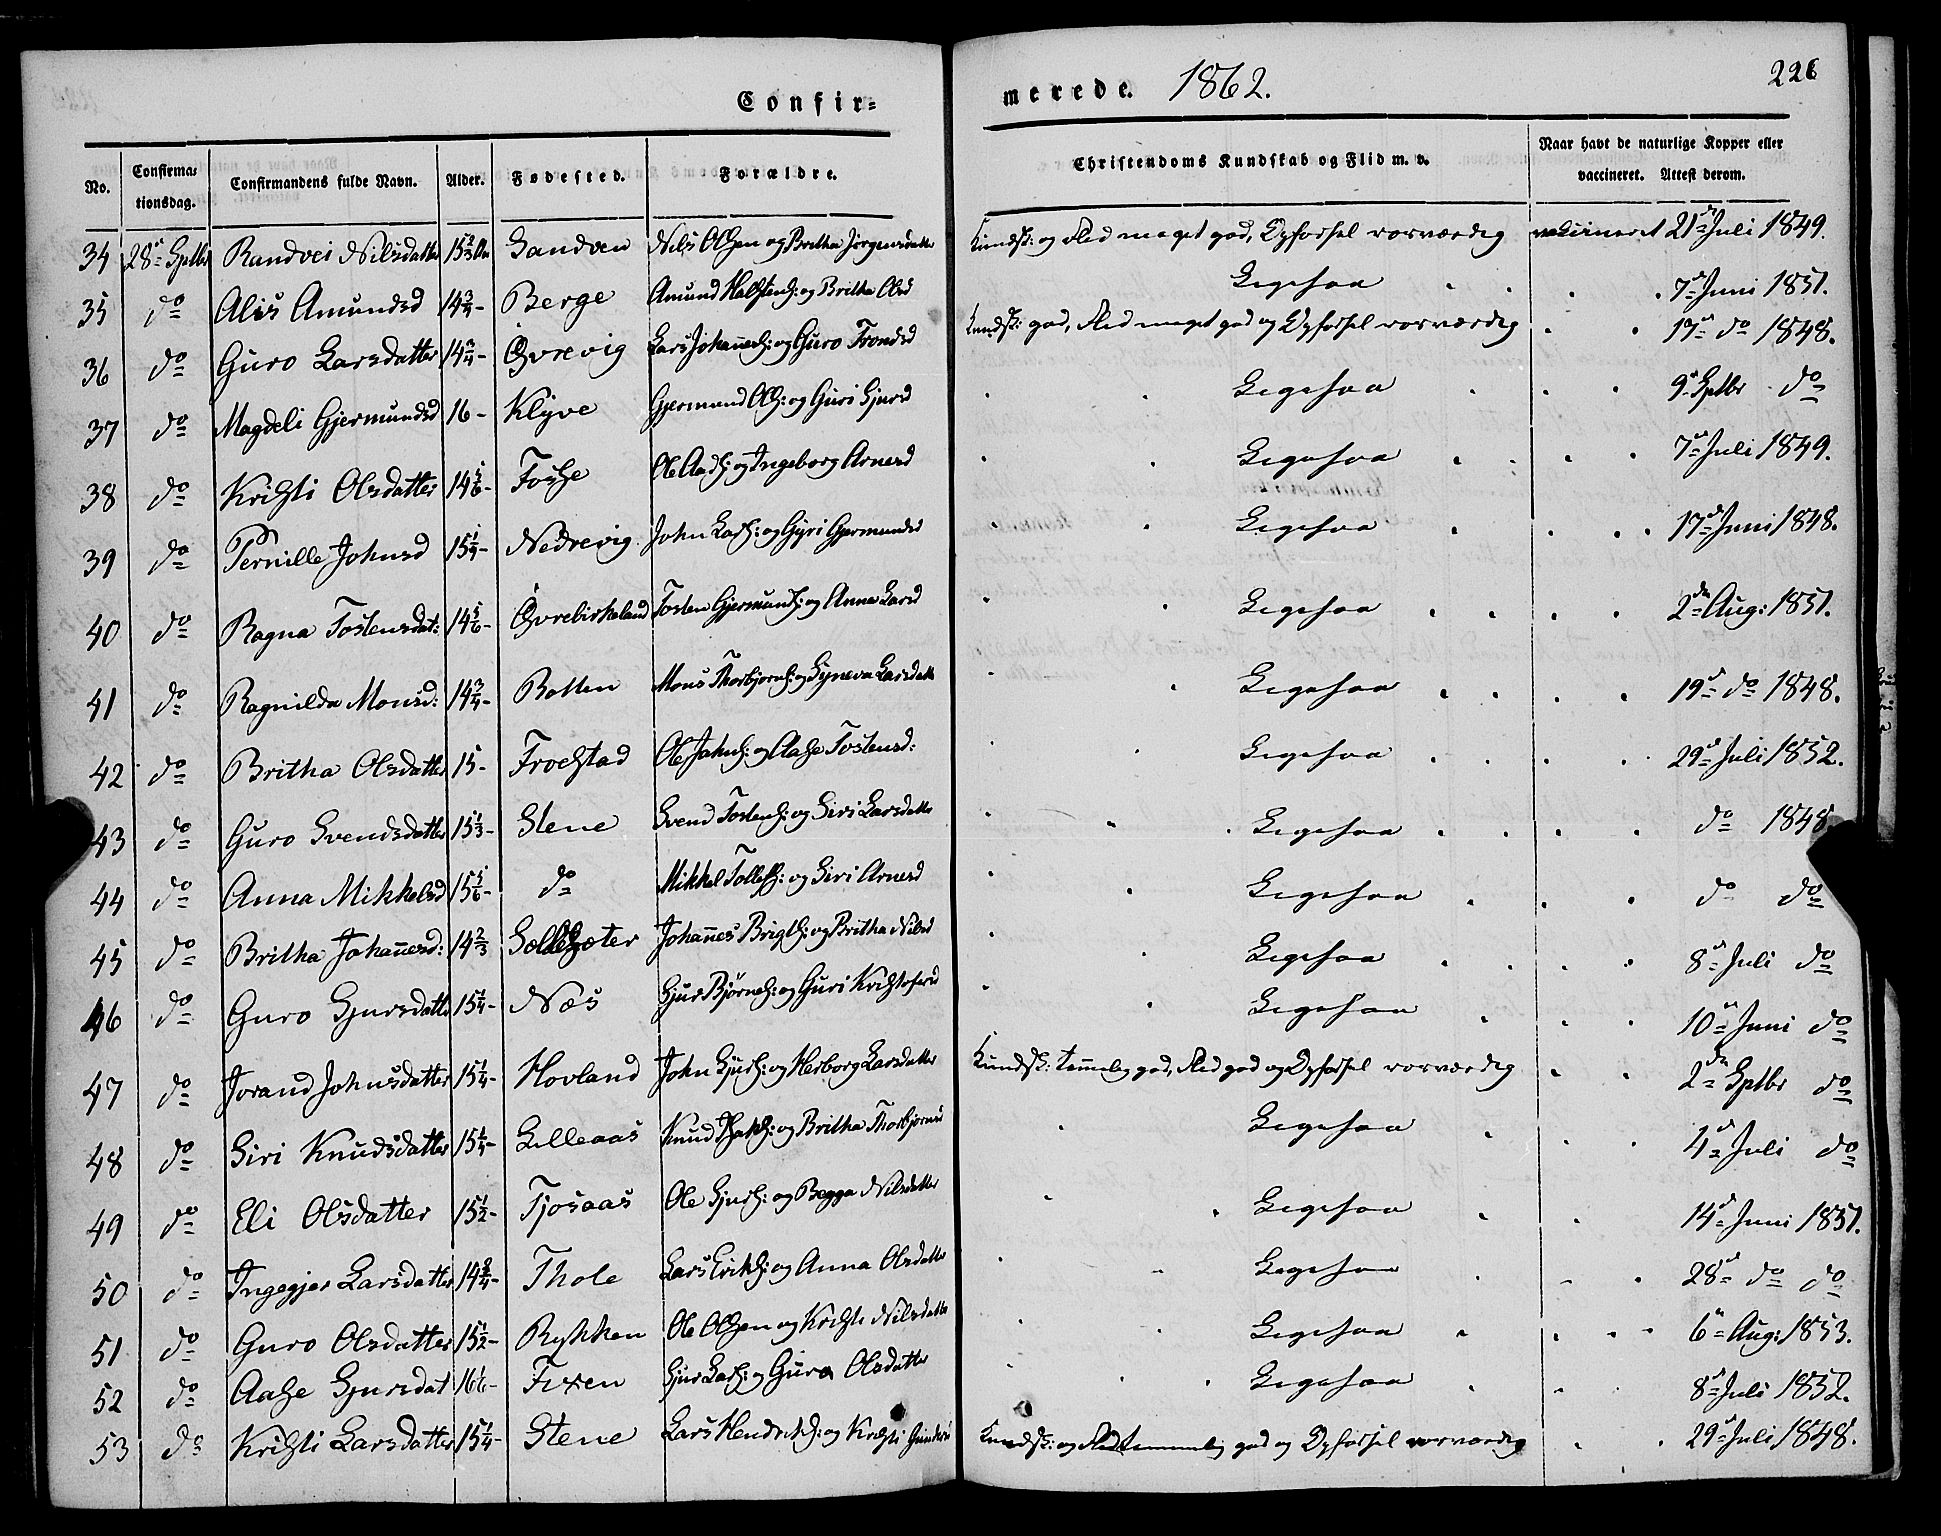 Confir=
merede. 1862.
226
No. Confirma= tionsdag. Confirmandens fulde Navn. Alder. Fødested. Forældre. Christendoms Kundskab og Flid m. v. Naar havt de naturlige Kopper eller vaccineret. Attest derom.
34 28de Septbr Randvei Nilsdatter 15 2/3 Aar Sandven Nils Olssen og Britha Jørgensdatter Kundsk: og Flid meget god, Opførsel rosværdig vakcineret 21de Juli 1849.
35 do Alis Amundsd 14 3/4 - Berge Amund Halstens: og Britha Olsd Ligesaa 7de Juni 1851.
36 do Guro Larsdatter 14 3/4 - Øvrevig Lars Johannes: og Guro Trondsd Kundsk: god, Flid meget god og Opførsel rosværdig 17de do 1848.
37 do Magdeli Gjermundsd 16 - Klyve Gjermund Ols: og Guri Sjursd Ligesaa 9de Septbr do
38 do Kristi Olsdatter 14 5/6 - Fosse Ole Aads: og Ingeborg Arnesd Ligesaa 7de Juli 1849.
39 do Pernille Johnsd 15 1/4 - Nedrevig John Lars: og Gyri Gjermundsd Ligesaa 17de Juni 1848.
40 do Ragna Tostensdat: 14 5/6 - Øvrebirkeland Tosten Gjermunds: og Anna Larsd Ligesaa 2den Aug: 1851.
41 do Ragnilda Monsd: 14 3/4 - Botten Mons Thorbjørns: og Synneva Larsdatter Ligesaa 19de do 1848.
42 do Britha Olsdatter 15 - Froestad Ole Johns: og Aase Tostensd: Ligesaa 29de Juli 1852.
43 do Guro Svendsdatter 15 1/3 - Stene Svend Tostens: og Siri Larsdatter Ligesaa do 1848
44 do Anna Mikkelsd 15 5/6 - do Mikkel Tolles: og Siri Arnesd Ligesaa do do
45 do Britha Johannesd: 14 2/3 Johannes Brigts: og Britha Nilsd Ligesaa 8de Juli do
46 do Guro Sjursdatter 15 1/4 - Næs Sjur Bjørns: og Guri Kristofersd Ligesaa 10de Juni do
47 do Jorand Johnsdatter 15 1/4 - Hovland John Sjurs: og Herborg Larsdatter Kundsk: temmelig god, Flid god og Opførsel rosværdig 2den Septbr do
48 do Siri Knudsdatter 15 1/4 - Lilleaas Knud og Britha Thorbjørnsd Ligesaa 4de Juli do
49 do Eli Olsdatter 15 1/2 - Tjosaas Ole Sjurs: og Bagga Nilsdatter Ligesaa 14de Juni 1851.
50 do Ingegjer Larsdatter 14 3/4 - Thole Lars Eriks: og Anna Olsdatter Ligesaa 28de do do
51 do Guro Olsdatter 15 1/2 - Rykken Ole Olssen og Kristi Nilsdatter Ligesaa 6te Aug: 1853.
52 do Aase Sjursdat 16 1/6 - Fixen Sjur Lars: og Guro Olsdatter Ligesaa 8de Juli 1852.
53 do Kristi Larsdatter 15 1/4 - Stene Lars Hendriks: og Kristi Kundsk: og Flid temmelig god og Opførsel rosværdig 29de Juli 1848.